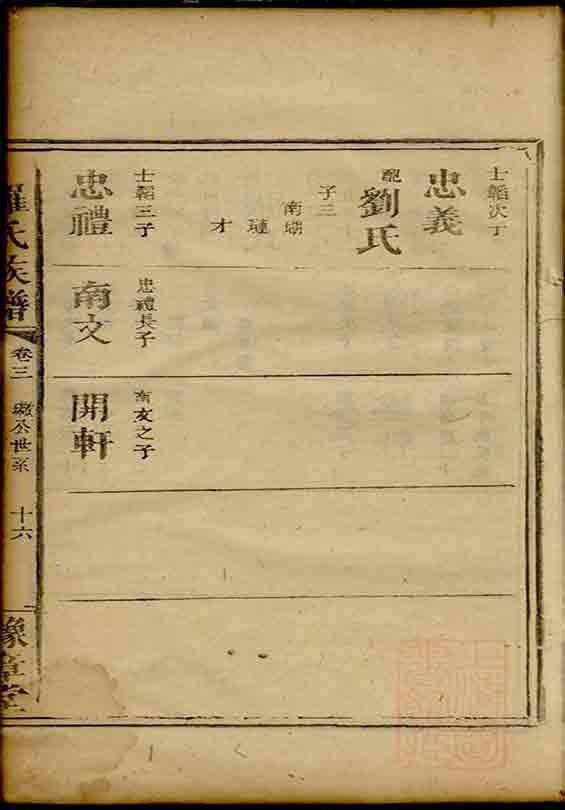 士韜次丁
忠義
配
劉氏
子三
南
璉
才
士韜三子
忠禮
忠禮長子
南文
南文之子
開軒
羅氏族譜
卷三
公世系
十六
豫章堂